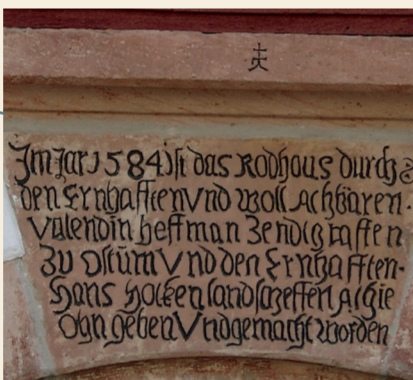 Im Jar 1584 ist das Rodhaus durch
den Ernhafften Vnd woll Achbaren.
Valendin heffman Zendigraffen
Zu Ostüm Vnd den Ernhafften.
Hans
geben Vnd gemacht worden